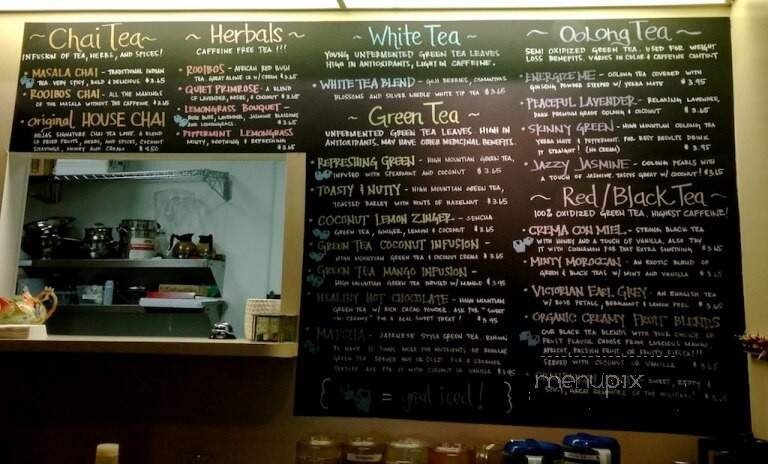 ~ Chai Tea ~
INFUSION OF TEA, HERBS, AND SPICES!
MASALA CHAI - TRADITIONAL INDIAN
TEA. VERY SPICY, BOLD & DELICIOUS $3.65
ROOIBOS CHAI - ALL THE MAKINGS
OF THE MASALA WITHOUT THE CAFFEINE. $3.65
Original HOUSE CHAI
HOJAS SIGNATURE CHAI TEA LATTE. A BLEND
OF DRIED FRUITS, HERBS, AND SPICES, COCONUT
SHAVINGS, $4.50
~ Herbals ~
CAFFEINE FREE TEA!!!
ROOIBOS - AFRICAN RED BUSH
TEA. GREAT ALONE OR W/CREAM $3.65
QUIET PRIMROSE - A BLEND
OF LAVENDER, ROSES, & COCONUT $3.65
LEMONGRASS BOUQUET -
LAVENDER, JASMINE BLOSSOMS
AND LEMONGRASS. $3.65
PEPPERMINT LEMONGRASS
MINTY, SOOTHING & REFRESHING
$3.65
~ White Tea ~
YOUNG UNFERMENTED GREEN TEA LEAVES
HIGH IN ANTIOXIDANTS, LIGHT IN CAFFEINE.
WHITE TEA BLEND - GOJI BERRIES,
BLOSSOMS AND SILVER NEEDLE WHITE TIP TEA $3.65
~ Green Tea ~
UNFERMENTED GREEN TEA LEAVES HIGH IN
ANTIOXIDANTS. MAY HAVE OTHER MEDICINAL BENEFITS.
REFRESHING GREEN - HIGH MOUNTIAN GREEN TEA,
INFUSED WITH SPEARMINT AND COCONUT $3.65
TOASTY & NUTTY - HIGH MOUNTIAN GREEN TEA,
TOASTED BARLEY WITH HINTS OF HAZELNUT $3.65
COCONUT LEMON ZINGER - SENCHA
GREEN TEA, GINGER, LEMON & COCONUT $3.65
GREEN TEA COCONUT INFUSION -
HIGH MOUNTIAN GREEN TEA & COCONUT CREMA $3.65
GREEN TEA MANGO INFUSION -
HIGH MOUNTIAN GREEN TEA INFUSED W/ MANGO $3.95
HEALTHY HOT CHOCOLATE - HIGH MOUNTIAN
GREEN TEA W/ RICH CACAO POWDER. ASK FOR "SWEET
-N-CREAMY" FOR A REAL SWEET TREAT! $3.95
MATCHA - JAPANESE STYLE GREEN TEA, KNOWN
TO HAVE 10 TIMES MORE THE NUTRIENTS OF REGULAR
GREEN TEA. SERVED HOT OR COLD. FOR A CREAMIER
TEXTURE ASK FOR IT WITH COCONUT OR VANILLA $4.95
{ = great iced! }
~ Oolong Tea ~
SEMI OXIDIZED GREEN TEA. USED FOR WEIGHT
LOSS BENEFITS, VARIES IN COLOR & CAFFEINE CONTENT
ENERGIZE ME - OOLONG TEA COVERED WITH
GINSENG POWDER STEEPED W/ YERBA MATE $3.95
PEACEFUL LAVENDER - RELAXING LAVENDER,
DARK PREMIUM GRADE OOLONG & COCONUT. $3.65
SKINNY GREEN - HIGH MOUNTIAN OOLONG TEA
YERBA MATE & PEPPERMINT. FOR BEST RESULTS DRINK
IT STRAIGHT! (NO CREAM) $3.95
JAZZY JASMINE - OOLONG PEARLS WITH
A TOUCH OF JASMINE. TASTES GREAT W/ COCONUT! $3.65
~ Red/Black Tea ~
100% OXIDIZED GREEN TEA, HIGHEST CAFFEINE!
CREMA CON MIEL - STRONG BLACK TEA
WITH HONEY AND A TOUCH OF VANILLA, ALSO TRY
IT WITH CINNAMON FOR THAT EXTRA SOMETHING $3.65
MINTY MOROCCAN - AN EXOTIC BLEND OF
GREEN & BLACK TEAS W/ MINT AND VANILLA $3.65
VICTORIAN EARL GREY - AN ENGLISH TEA
W/ ROSE PETAL, BERGAMOT & LEMON PEEL $3.65
ORGANIC CREAMY FRUIT BLENDS
OUR BLACK TEA BLENDS WITH YOUR CHOICE OF
FRUIT FLAVOR. CHOOSE FROM LUSCIOUS MANGO,
APRICOT, PASSION FRUIT, OR FRUITY FIESTA!!!
SERVED WITH COCONUT OR VANILLA $3.65
SWEET,
SPICY, GREAT REMINDER OF THE HOLIDAYS!
menupix